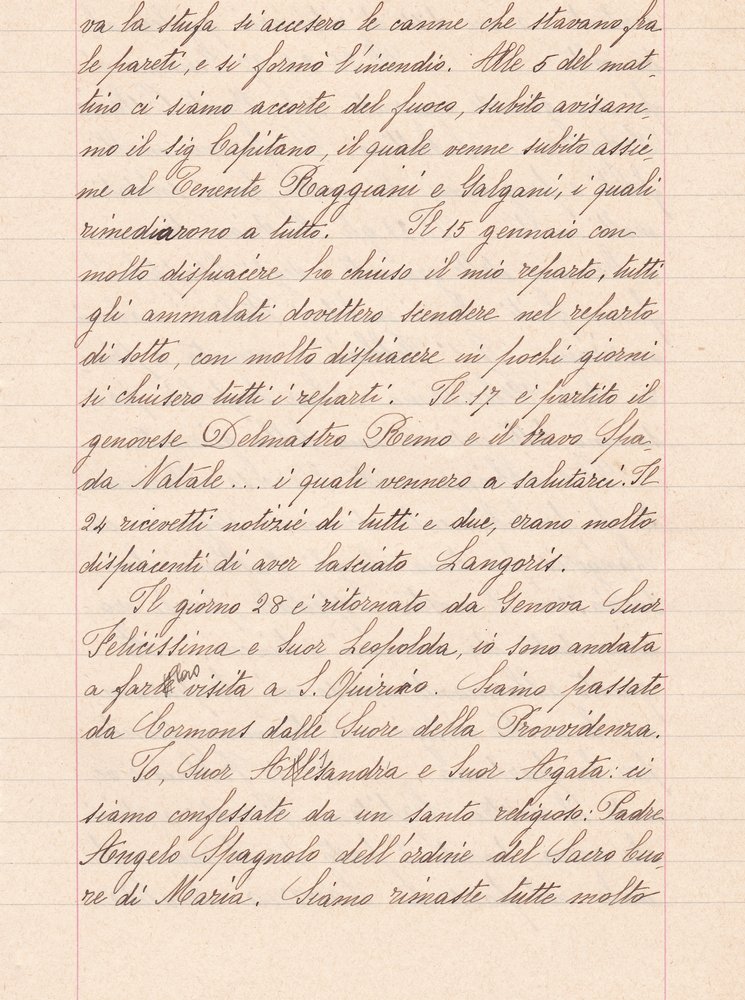 va la stufa si accesero le canne che stavano fra
le pareti, e si formò l'incendio. Alle 5 del mat-
tino ci siamo accorte del fuoco, subito avisam-
mo il sig Capitano, il quale venne subito assie-
me al Tenente Raggiani e Galgani, i quali
rimediarono a tutto. Il 15 gennaio con
molto dispiacere ho chiuso il mio reparto, tutti
gli ammalati dovettero scendere nel reparto
di sotto, con molto dispiacere in pochi giorni
si chiusero tutti i reparti. Il 17 è partito il
genovese Delmastro Remo e il bravo Spa-
da Natale... i quali vennero a salutarci. Il
24 ricevetti notizie di tutti e due, erano molto
dispiacenti di aver lasciato Langoris.
Il giorno 28 è ritornato da Genova Suor
Felicissima e Suor Leopolda, io sono andata
a far loro visita a S. Quirino. Siamo passate
da Cormons dalle Suore della Provvidenza.
Io, Suor Alessandra e Suor Agata: ci
siamo confessate da un santo religioso: Padre
Angelo Spagnolo dell'ordine del Sacro Cuo-
re di Maria. Siamo rimaste tutte molto